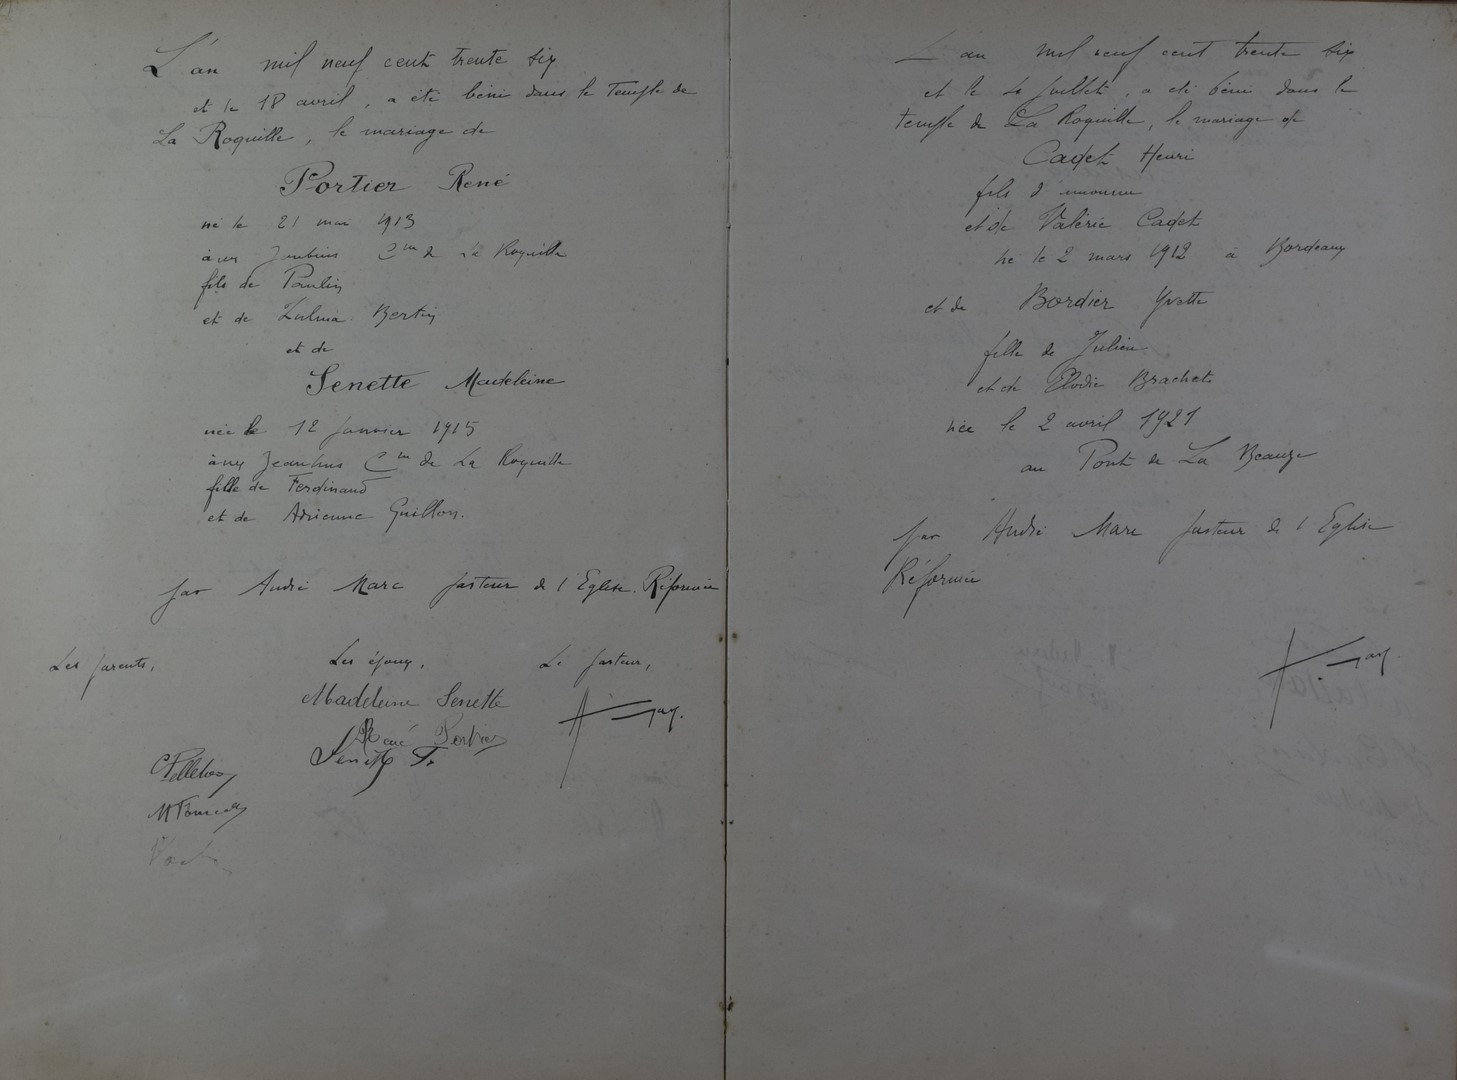 L'an mil neuf cent trente six
et le 18 avril, a été béni dans le Temple de
La Roquille, le mariage de
Portier René
né le 21 mai 1913
aux Cne de La Roquille
fils de Paulin
et de Zulma Bertin
et de
Senette Madeleine
née le 12 janvier 1915
aux Jeanhus Cne de La Roquille
fille de Ferdinand
et de Adrienne Guillon.
par André Marc pasteur de l'Eglise Réformée
Les parents,
Les époux,
Le pasteur,
Madeleine Senette
René Portier
Senette F.
L'an mil neuf cent trente six
et le 4 Juillet, a été béni dans le
temple de La Roquille, le mariage de
Cadet Henri
fils d'inconnu
et de Valérie Cadet
né le 2 mars 1912 à Bordeaux
et de Bordier Yvette
fille de Julien
et de Elodie Brachet
née le 2 avril 1921
au Pont de La Beauze
par André Marc pasteur de l'Eglise
Réformée